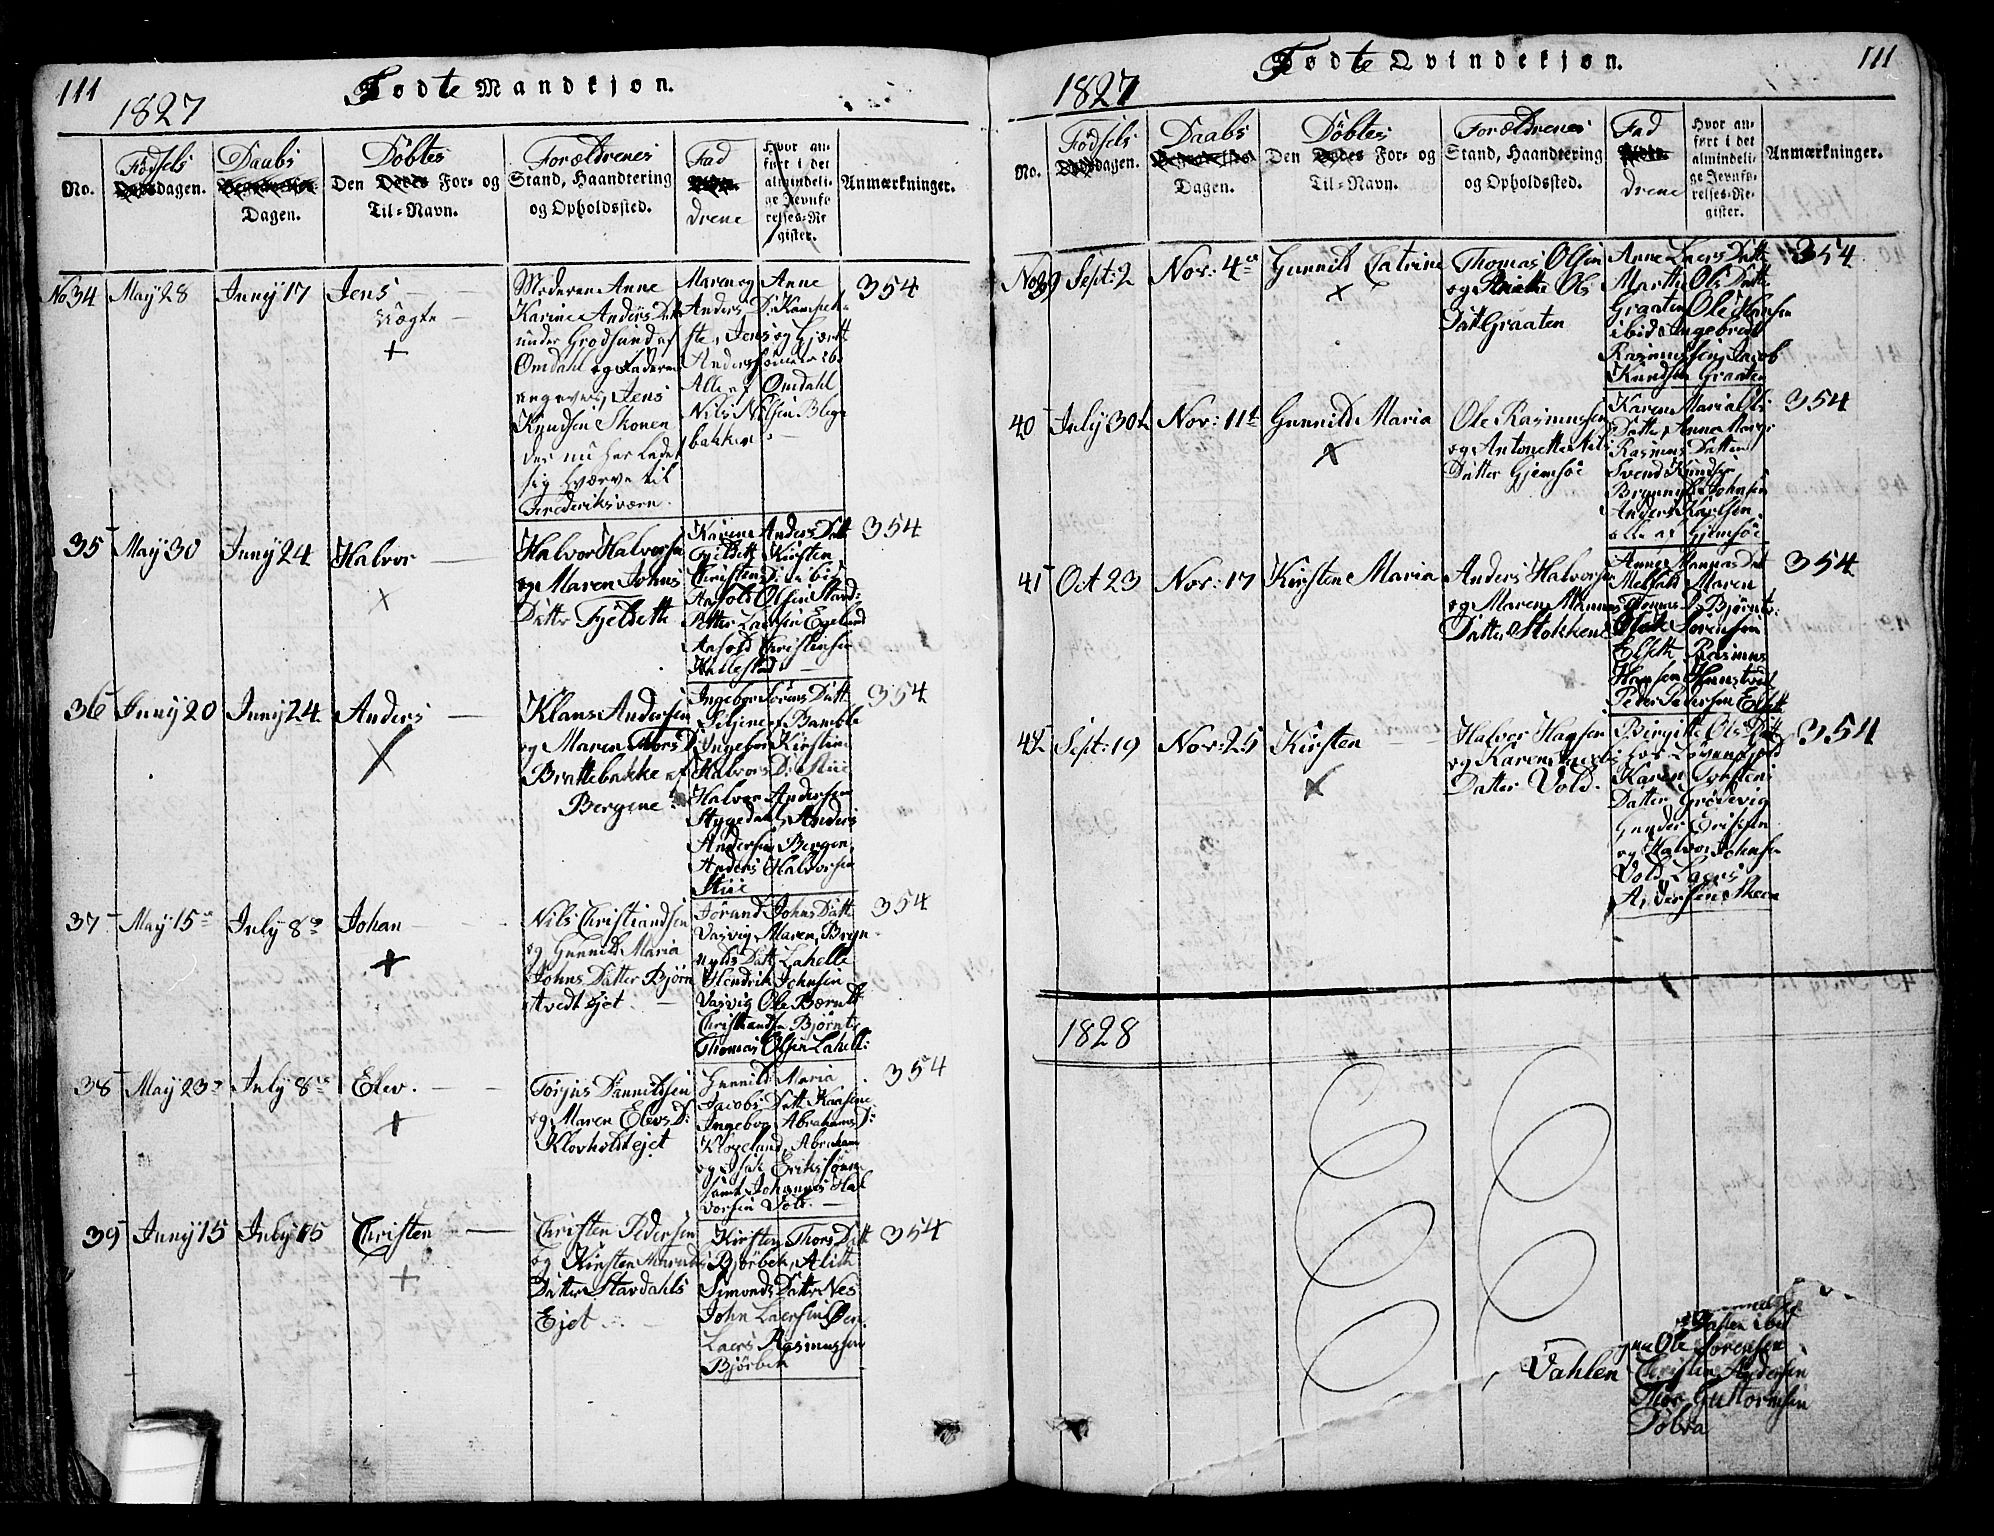 111
1827
Födte Mandkjøn.
No.
Födsels
dagen.
Daabs
Dagen.
Döbtes
Den For- og
Til-Navn.
Forældrenes
Stand, Haandtering
og Opholdssted.
Fad
drene
Hvor an-
ført i det
almindeli-
ge Jevnfø-
relses-Re-
gister.
Anmærkninger.
No 34 May 28 Juny 17 Jens
Uægte
+
Moderen Anne
Karine Anders Dat
under Grodsund af
Omdahl og Faderen
angeves, Jens
Knudsen Skonen
der nu har ladet
sig hværve til
Frederiksværn.
Maren og Anne
Anders D: Kamsek
ste, Jens og Gjert
Anders
Alle af Omdahl
Nils Nilsen Blege
bakken
354
35 May 30 Juny 24 Halvor
Halvor Halvorsen
og Maren Johns
Datter Fjeldett
Karine Anders Datt
Fjeldett Kirsten
Christens D: ibid
Ansold Olsen Stand
Petter Laersen Egeland
Ansold Christensen
Hallestad
354
36 Juny 20 Juny 24 Anders
Klaus Andersen
og Maren Thors D:
Brattebakke af
Bergene
Ingebor Sörens Datt
Seljene af Bamble
Ingebor Kirstine
Halvors D: Stiie
Halvor Andersen
Stygedahl, Anders
Andersen Bergen,
Anders Halvorsen
Stiie
354
37 May 15 July 8 Johan
+
Nils Christiandsen
og Gunnild Maria
Johns Datter Bjørn
stvedt Ejet
Jorund Johns Datt
Vasvig, Maren Bryn
nylds Datt Lahelle
Hendrik Johnsen
Vasvig Ole Bærnt
Christiandsen Björnt:
Thomas Olsen Lahell:
354
38 May 23 July 8 Elev.
+
Torjus Dannildsen
og Maren Elevs D:
Klovholt ejet
Gunnild Maria
Jacobs Datt Kaasene
Ingebor Abrahams D:
Klogeland, Abraham
og Isak Eriksönner
samt Johannes Hal
vorsen Vold.
354
39 Juny 15 July 15 Christen
+
Christen Pedersen
og Kirsten Maria
Datter Stavdahls
Ejet
Kirsten Thors Datt
Bjørbek, Alith
Simonds Datter Nes
John Laersen
Laers Rasmussen
Bjørbek
354
1827
Födte Qvindekjøn.
111
No.
Födsels
dagen.
Daabs
Dagen.
Döbtes
Den For- og
Til-Navn.
Forældrenes
Stand, Haandtering
og Opholdssted.
Fad
drene
Hvor an-
ført i det
almindeli-
ge Jevnfø-
relses-Re-
gister.
Anmærkninger.
No 39 Sept: 2 Nov: 4 Gunnild Catrine
Thomas Olsen
og Ols
Datt Graaten
Anne Laers Datt
Marthe Ols Datt
Graaten Ole Hansen
ibid Ingebredt
Rasmussen, Jacob
Knudsen Graaten
354
40 July 30 Nov: 11 Gunnild Maria
Ole Rasmussen
og Antonette Nils
Datter Gjemsöe
Karen Maria Ols
Datter, Anne Marg:
Rasmus Datter
Svend Knudsen
Brynnyld Johnsen
Anders Karlsen
alle af Gjemsöe
354
41 Oct 23 Nov: 17 Kirsten Maria
Anders Halvorsen
og Maren Mannas
Datter Stokkene
Anne Mannas Dat
Melfald Maren
Thomas D: Bjørnt:
Sorensen
Elseth Rasmus
Hansen
Peder Pedersen
354
42 Sept: 19 Nov: 25 Kirsten
Halvor Hansen
og Karen
Datter Vold.
Birgitte Ols Datt
hos
Karen Torsten
Datter Grödevig
Gunder Erichsen
og Halvor Johnsen
Vold Laers
Andersen Skeen
354
1828
Vahlen
Datter ibid
Ole Sörensen
Christen Andersen
Thor Guttormsen
Tolvra